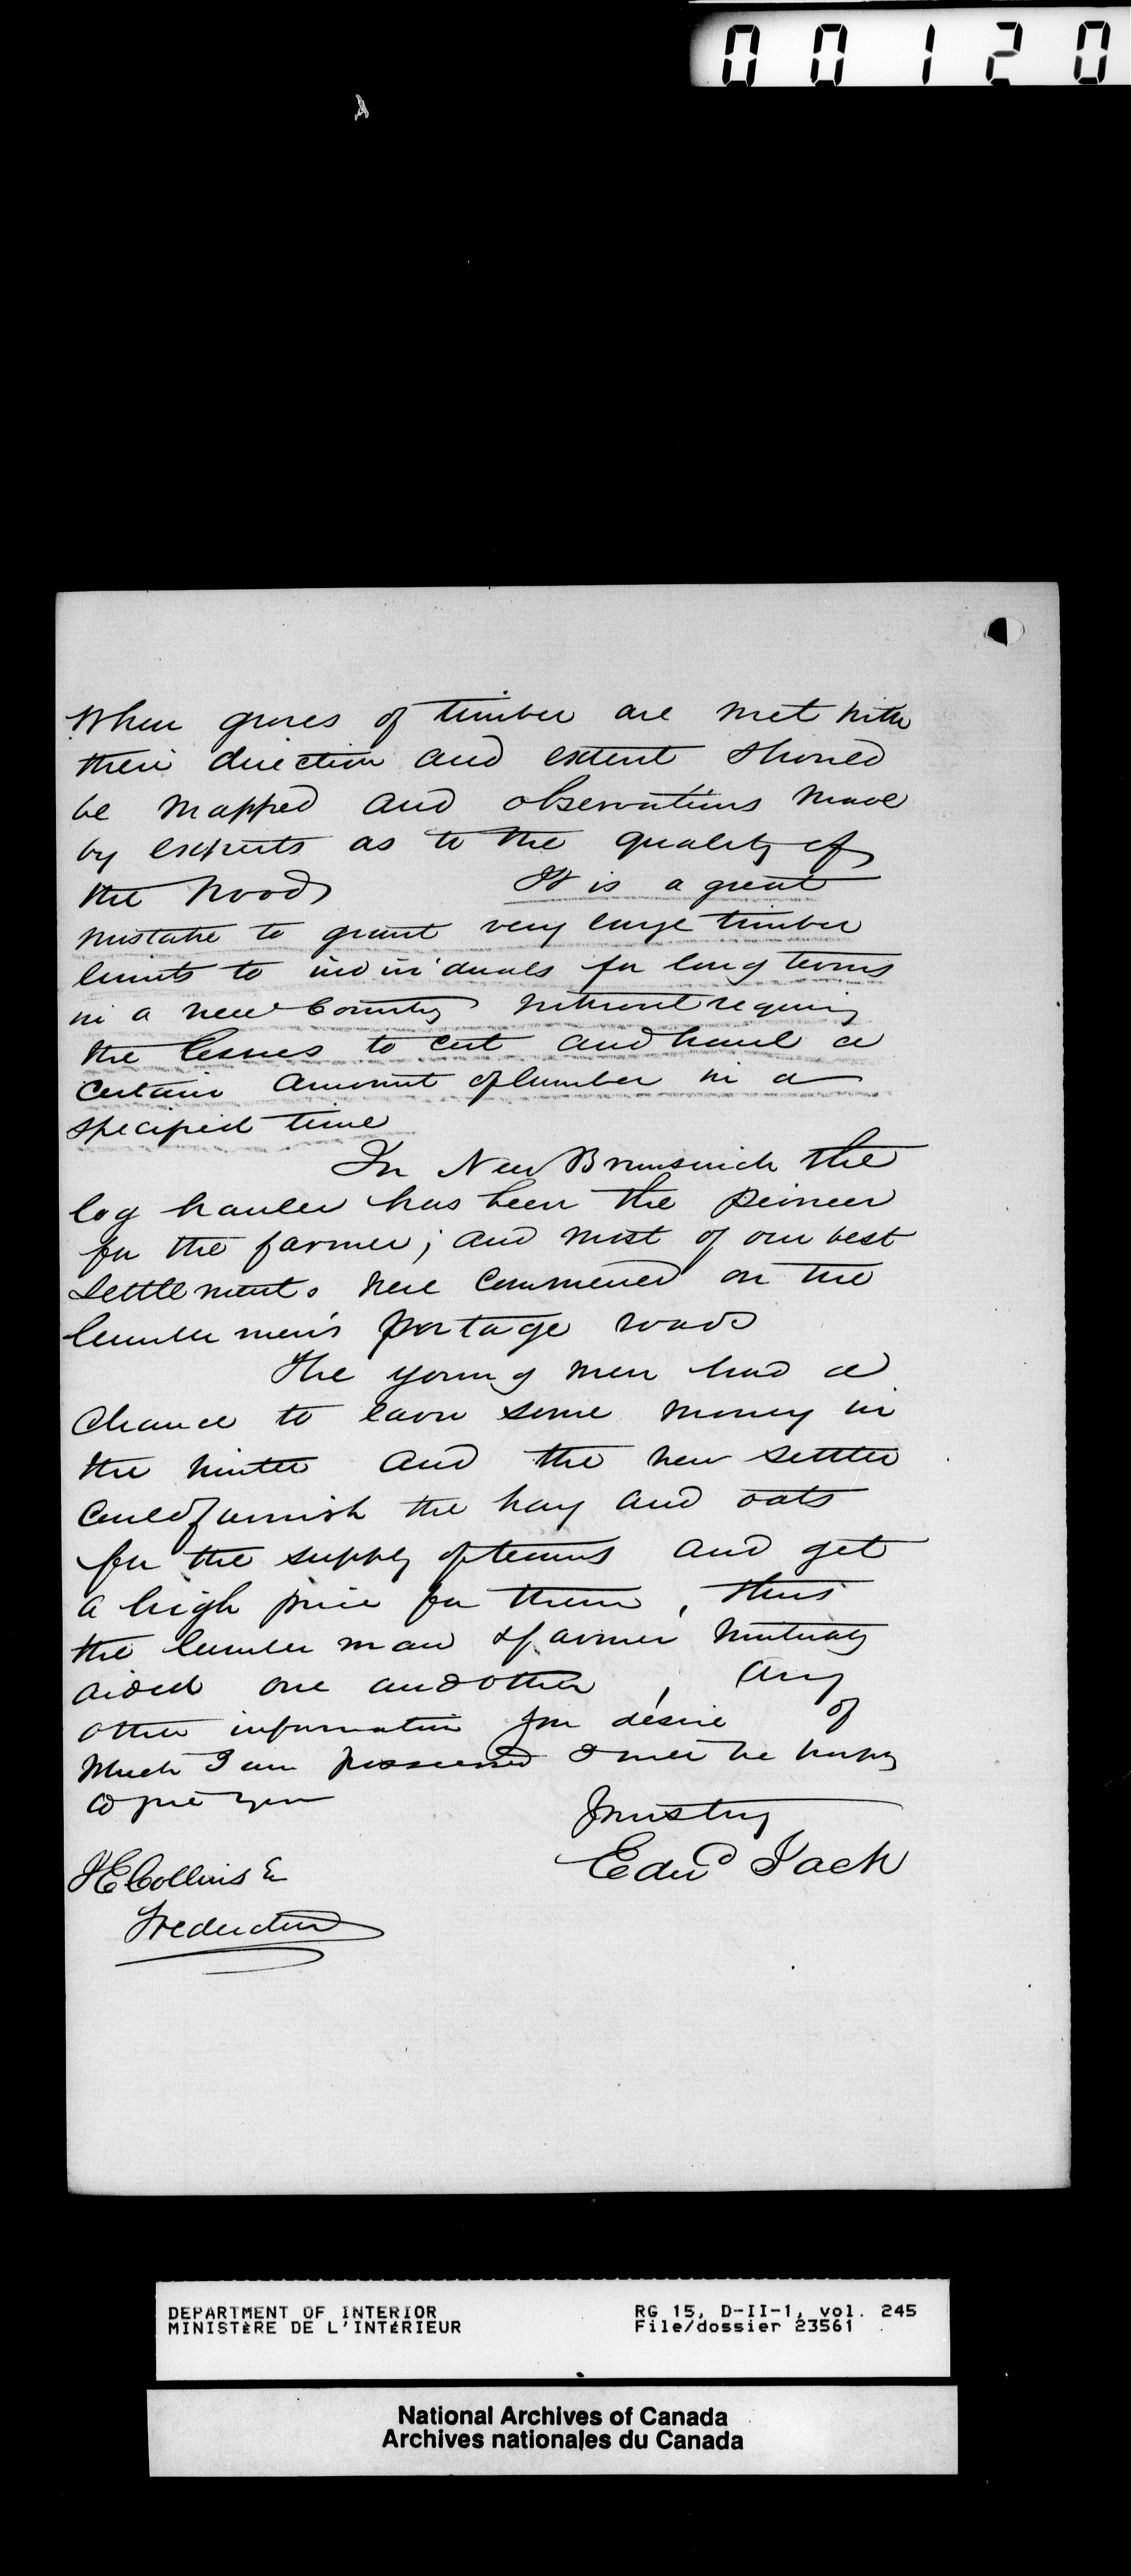 00120
When groves of timber are met with
their direction and extent should
be mapped and observations made
by experts as to the quality of
the wood It is a great
mistake to grant very large timber
limits to individuals for long terms
in a new Country without requiring
the lessees to cut and haul a
certain amount of lumber in a
specified time
In New Brunswick the
log hauler has been the pioneer
for the farmer; and most of our best
settlements were commenced on the
lumbermen's portage roads
The young men had a
chance to earn some money in
the winter and the new settler
could furnish the hay and oats
for the supply of teams and get
a high price for them, thus
the lumber man & farmer mutually
aided one another, Any
other information you desire of
which I am possessed I will be happy
to give you
Yours truly
Edwd Jack
J E Collins Er
Fredericton
DEPARTMENT OF INTERIOR
MINISTÈRE DE L'INTÉRIEUR
RG 15, D-II-1, vol. 245
File/dossier 23561
National Archives of Canada
Archives nationales du Canada